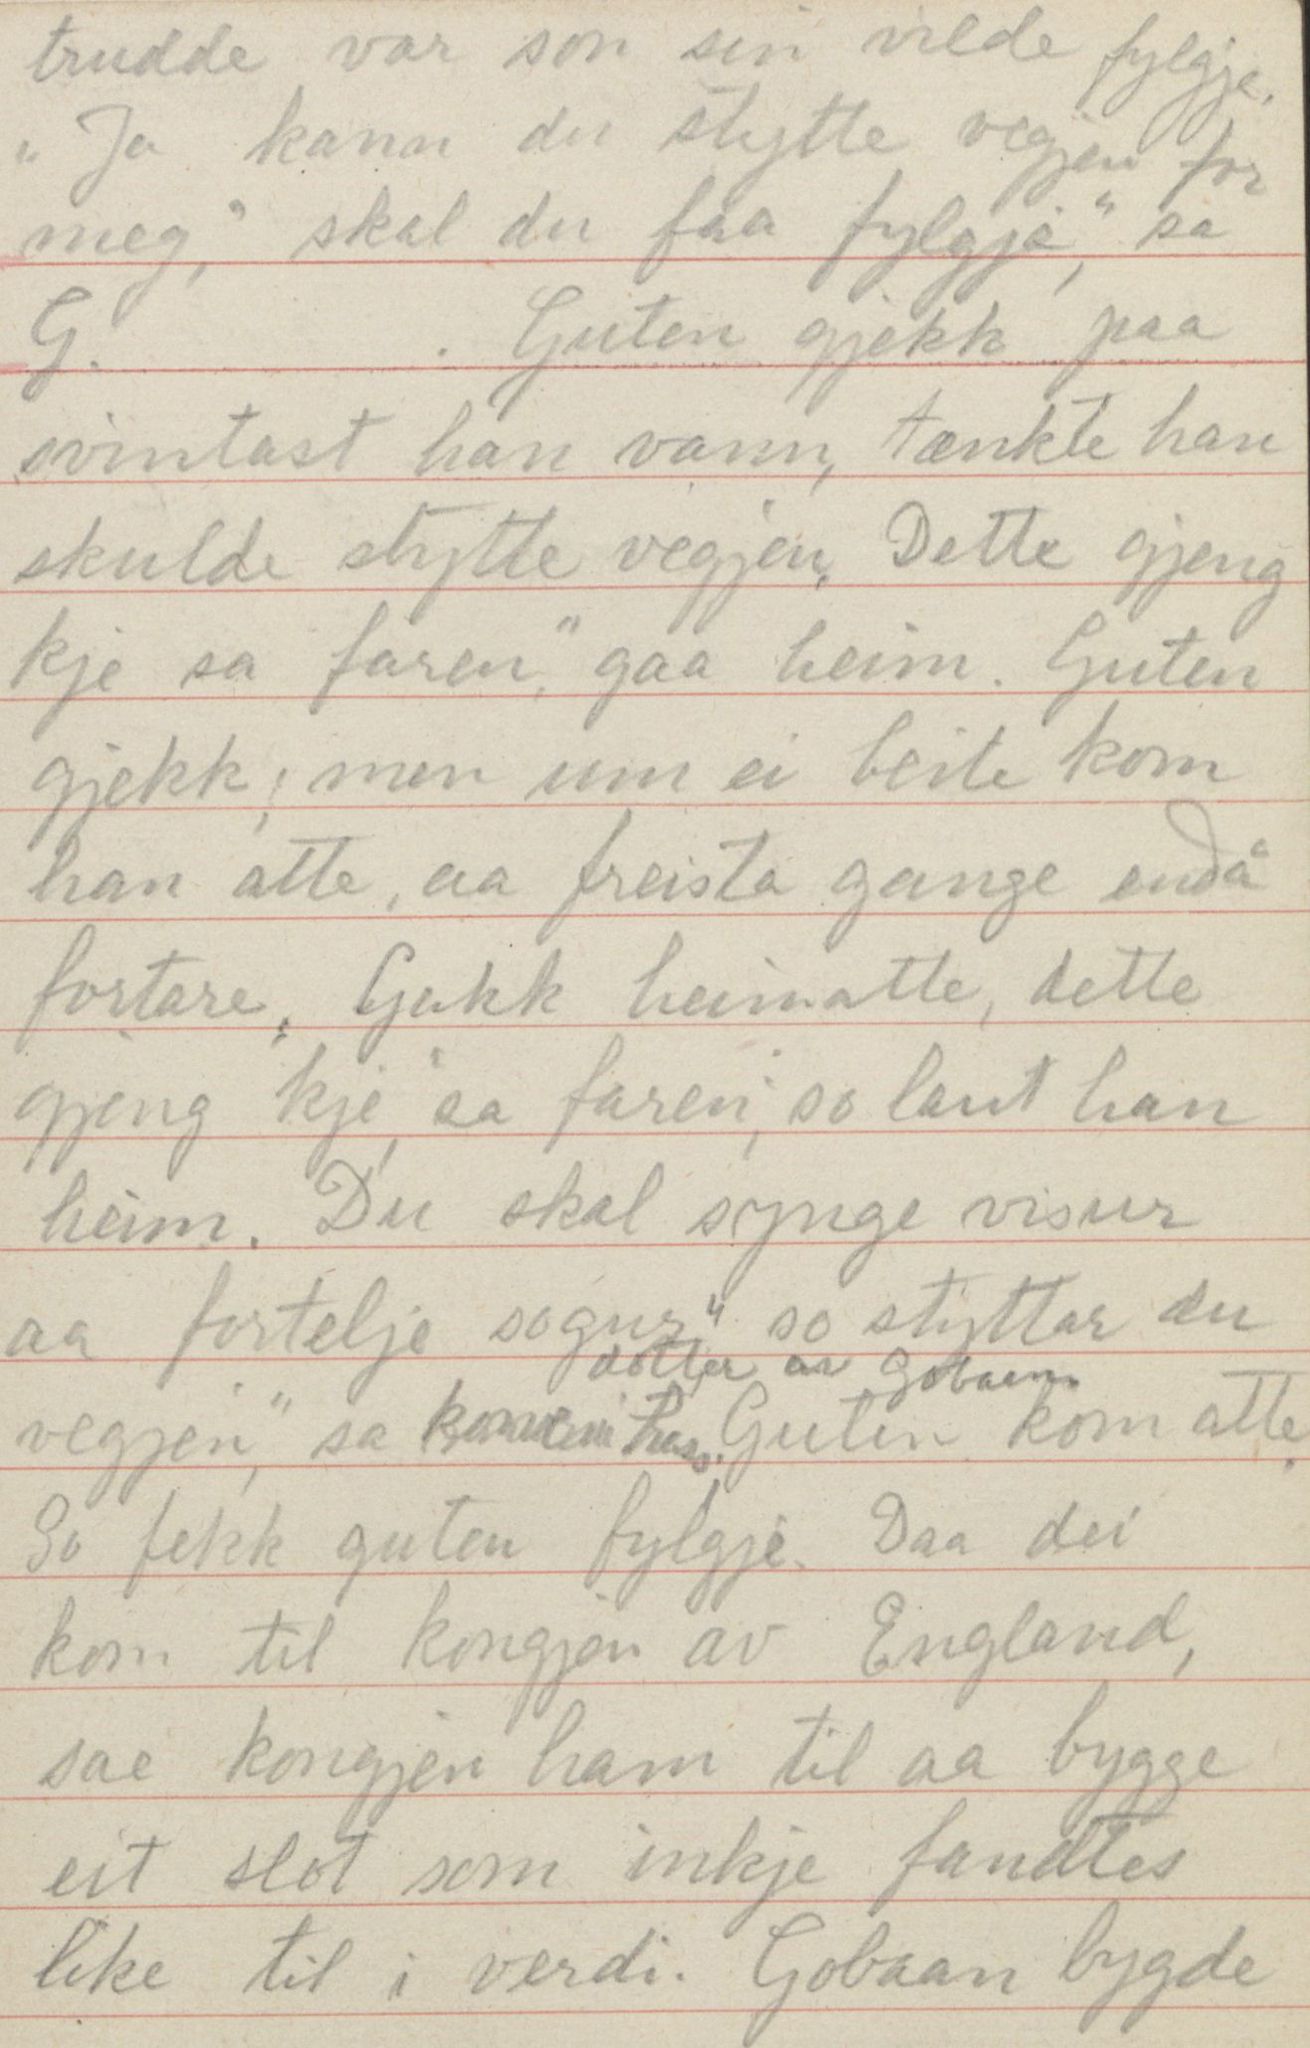 trudde var son sin vilde fylgje.
„Ja kann du stytte vegjen for
meg," skal du faa fylgje," sa
G. . Guten gjekk paa
svintast han vann, tænkte han
skulde stytte vegjen. Dette gjeng
kje sa faren," gaa heim. Guten
gjekk; men um ei beite kom
han atte, aa freista gange endå
fortare. Gakk heimatte, dette
gjeng 'kje," sa faren, so laut han
heim. Du skal synge visur
aa fortelje sogur" so styttar du
dotter av Gobaan.
vegjen," sa hass. Guten kom atte.
So fekk guten fylgje. Daa dei
kom til kongjen av England,
sae kongjen ham til aa bygge
eit slot som inkje fandtes
like til i verdi. Gobaan bygde